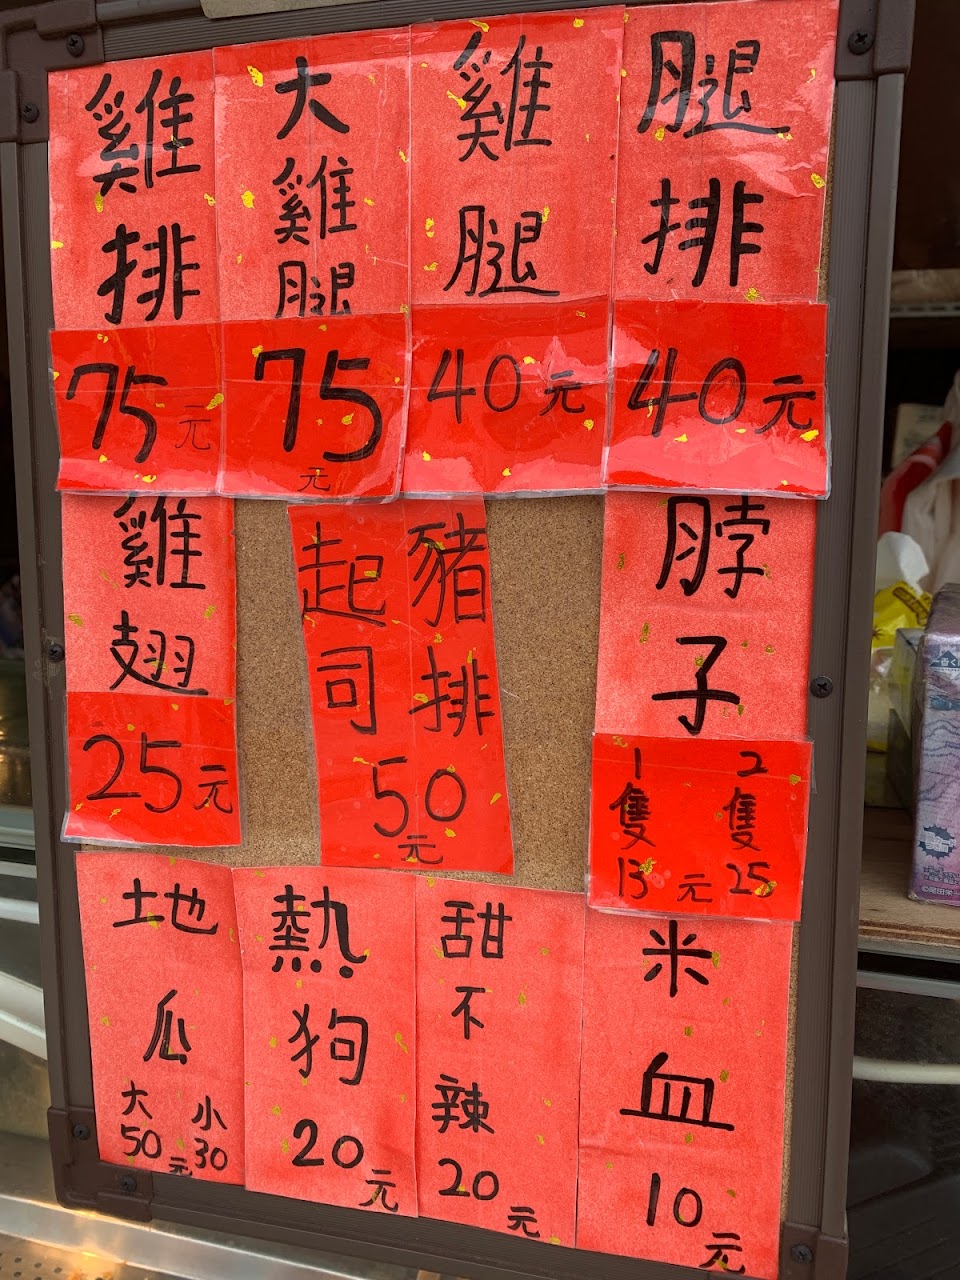 雞排
75元
大雞腿
75元
雞腿
40元
腿排
40元
雞翅
25元
起司豬排
50元
脖子
1隻 2隻
13元 25
地瓜
大 小
50元 30
熱狗
20元
甜不辣
20元
米血
10元